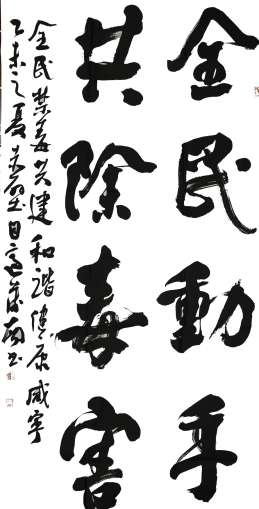 全民動手
共除毒害
全民禁毒共建和谐健康咸寧
乙未之夏赤壁